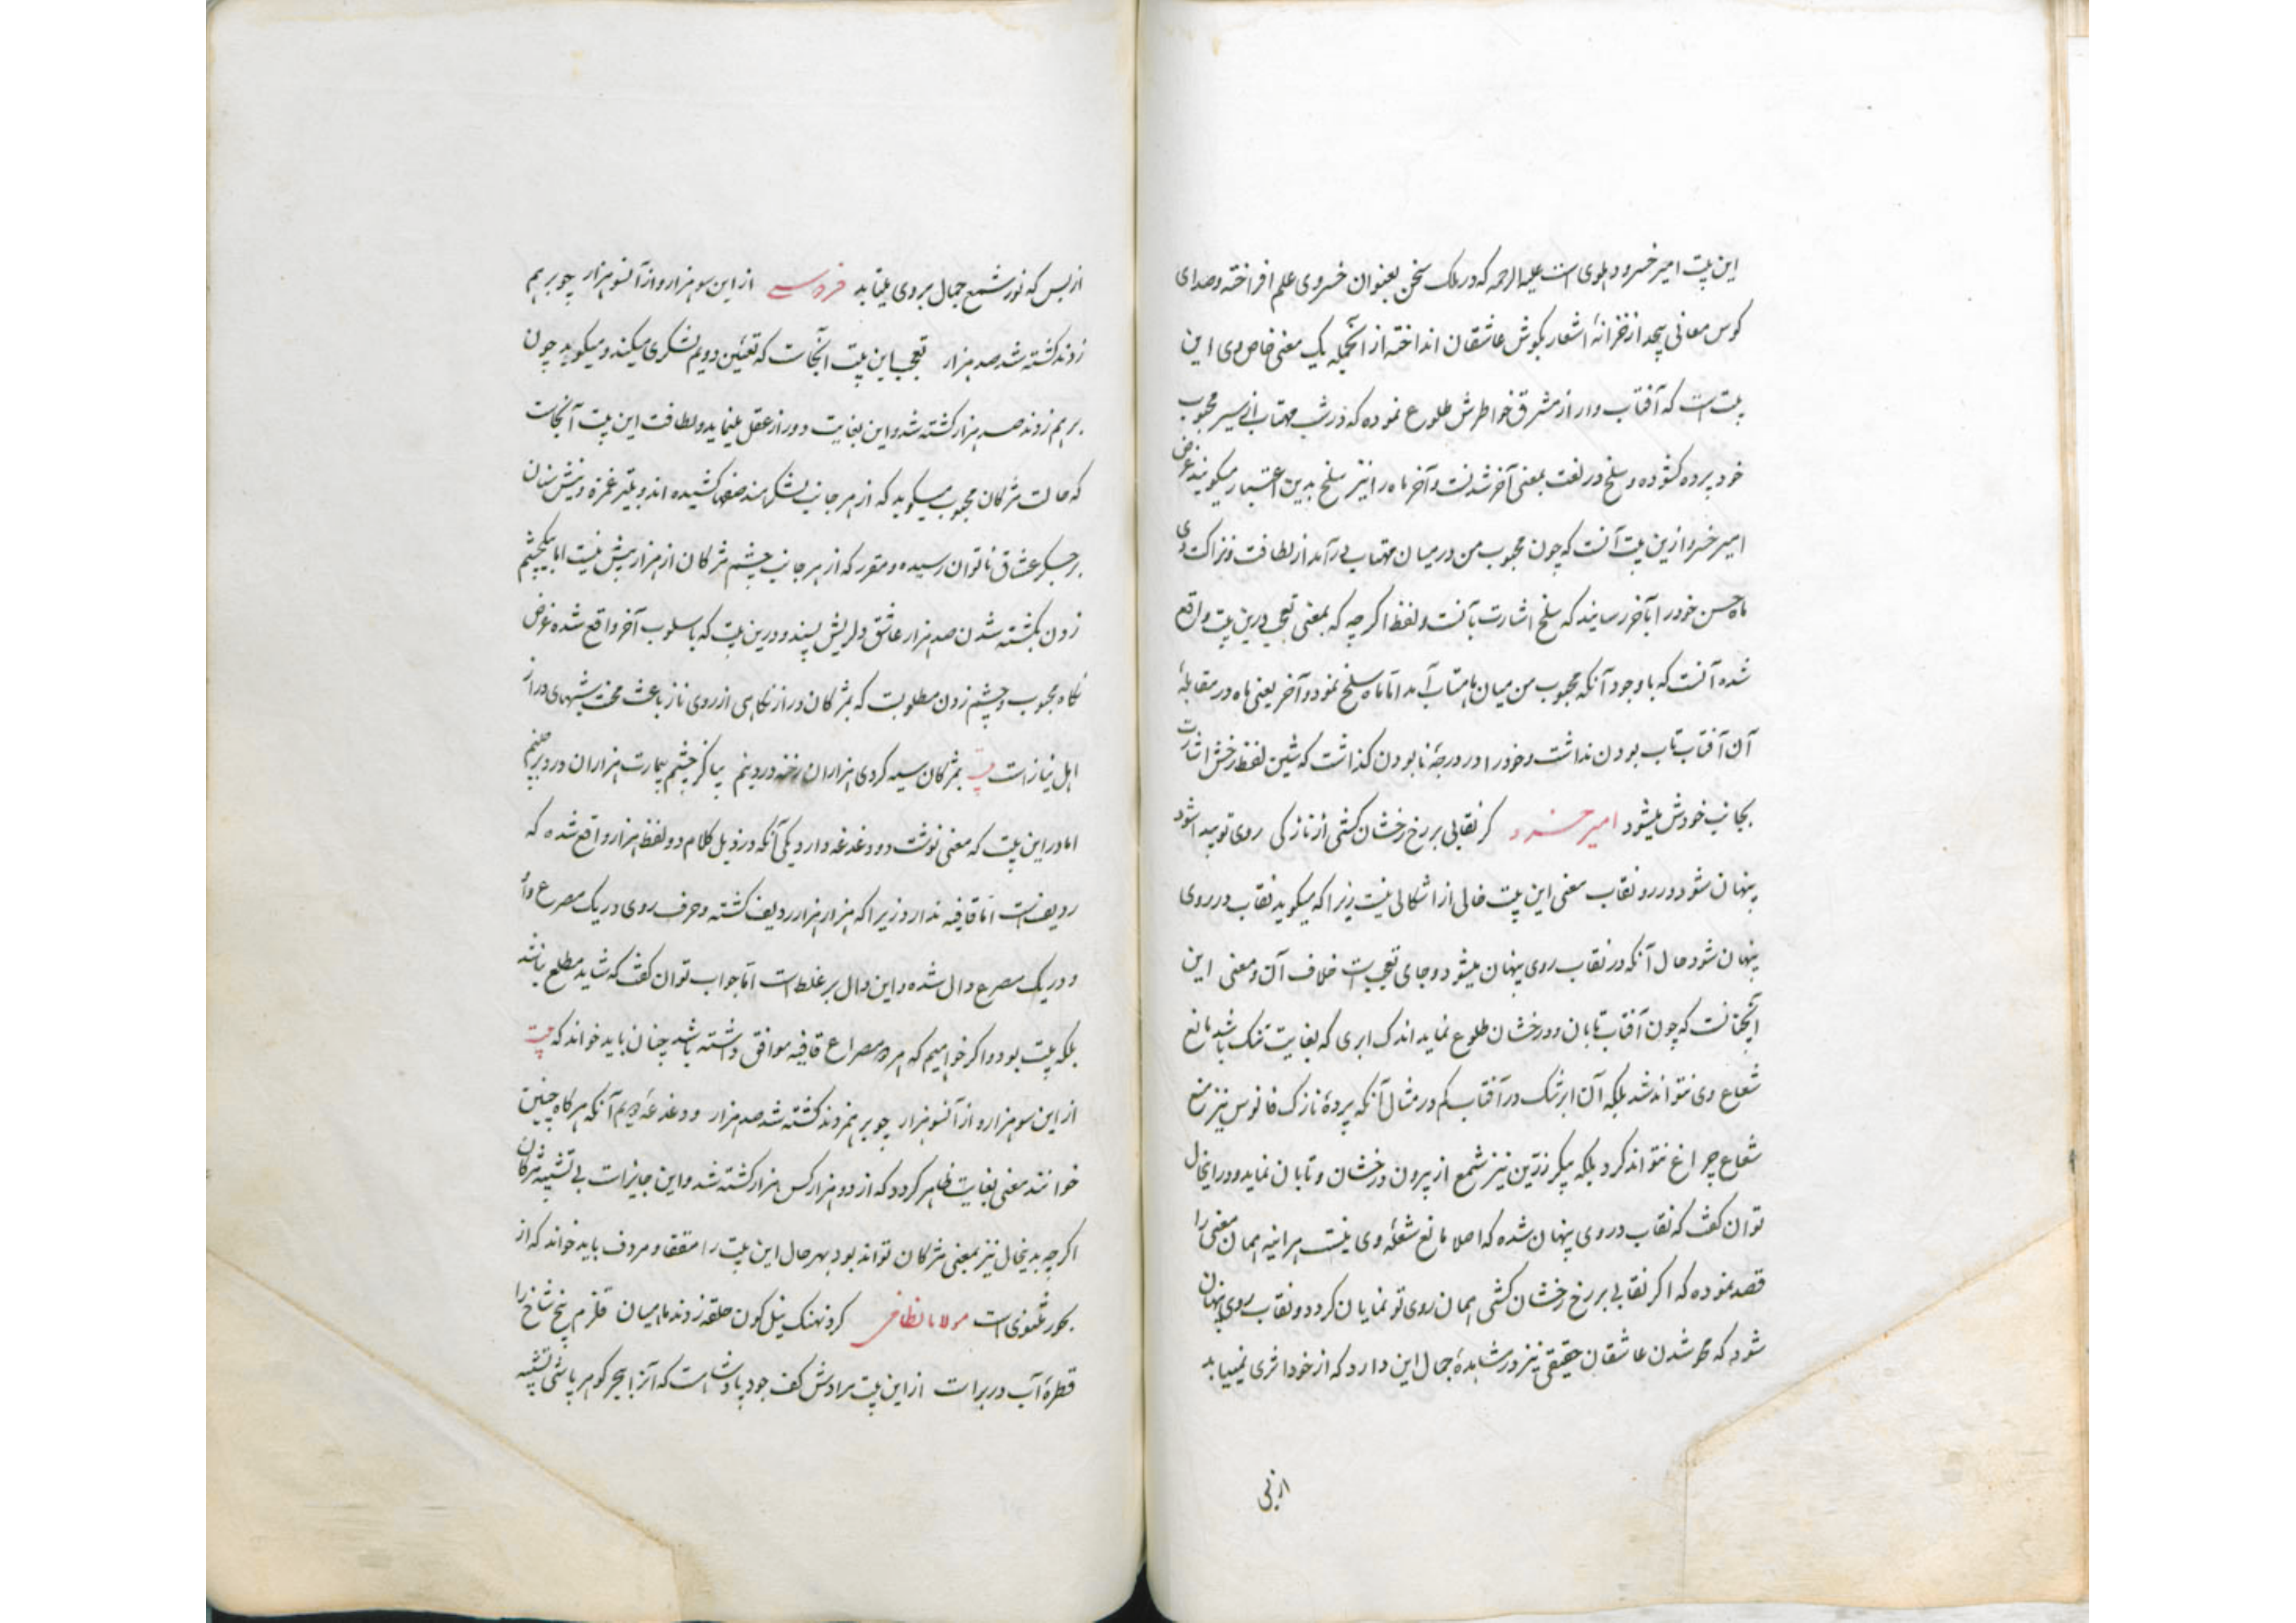 این بیت امیر خسرو دهلوی است علیه الرحمه که در ملک سخن بعنوان خسروی علم افراخته و صدای
کوس معانی بیحد از خزانهٔ اشعار بکوش عاشقان انداخته از آنجمله یک معنی خاص وی این
بیت است که آفتاب وار از مشرق خواطرش طلوع نموده که در شب مهتاب از سیر محبوب
خود پرده کشوده و سلخ در لغت بمعنی آخر شدنست و آخر ماه را نیز سلخ بدین اعتبار میکویند غرض
امیر خسرو ازین بیت آنست که چون محبوب من در میان مهتاب درآمد از لطافت و نزاکت وی
ماه حسن خود را بآخر رسانید که سلخ اشارت بآنست و لفظ اکر چه که بمعنی تعجب درین بیت واقع
شده آنست که با وجود آنکه محبوب من میان ماهتاب آمد اما ماه سلخ نمود و آخر یعنی ماه در مقابلهٔ
آن آفتاب تاب بودن نداشت و خود را در درجهٔ نابودن کذاشت که شین لفظ رخش اشارت
بجانب خودش میشود امیر خسرو کر نقابی بر رخ رخشان کشی از نازکی روی تو پیدا شود
پنهان شود در رو نقاب معنی این بیت خالی از اشکالی نیست زیرا که میکوید نقاب در روی
پنهان شود حال آنکه در نقاب روی پنهان میشود و جای تعجب است خلاف آن و معنی این
آنچنانست که چون آفتاب تابان و درخشان طلوع نماید اندک ابری که بغایت تنک باشد مانع
شعاع وی نتواند شد بلکه آن ابر تنک در آفتاب کم در مثال آنکه پردهٔ نازک فانوس نیز منع
شعاع چراغ نتواند کرد بلکه پیکر زرین نیز شمع از بیرون درخشان و تابان نماید و درینحال
توان کفت که نقاب در روی پنهان شده که اصلا مانع شعلهٔ وی نیست هرآینه همان معنی را
قصد نموده که اکر نقابی بر رخ رخشان کشی همان روی تو نمایان کردد و نقاب روی پنهان
شود که محو شدن عاشقان حقیقی نیز در مشاهدهٔ جمال این دارد که از خود اثری نمییابد
از بس
از بس که نور شمع جمال بروی میتابد فردوسی از این سو هزار و از آنسو هزار چو بر هم
زدند کشته شد صد هزار تعجب این بیت آنجاست که تعیین دویم لشکری میکند و میکوید چون
بر هم زدند صد هزار کشته شد و این بغایت دور از عقل مینماید و لطافت این بیت آنجاست
که حالت مژکان محبوب میکوید که از هر جانب لشکر مند صفها کشیده اند و بتیر غمزه و نیش سنان
بر جکر عشاق ناتوان رسیده و مقرر که از هر جانب چشم مژکان از هزار بیش نیست اما بیکچشم
زدن بکشته شدن صد هزار عاشق دلریش پسند و درین بیت که باسلوب آخر واقع شده غرض
نکاه محبوب و چشم زدن مطلوبست که بمژکان دراز نکاهی از روی ناز باعث محنت شبهای دراز
اهل نیاز است بیت بمژکان سیه کردی هزاران رخنه در دینم بیا کز چشم بیمارت هزاران درد برچینم
اما در این بیت که معنی نوشت دو دغدغه دارد یکی آنکه در ذیل کلام دو لفظ هزار واقع شده که
ردیفست اما قافیه ندارد زیرا که هزار هزار ردیف کشته و حرف روی در یک مصرع واو
و در یک مصرع دال شده و این دال بر غلطست اما جواب توان کفت که شاید مطلع نباشد
بلکه بیت بود و اکر خواهیم که هر دو مصراع قافیه موافق داشته باشد چنان باید خواند که بیت
از این سو هزار و از آنسو هزار چو بر هم زدند کشته شد صد هزار و دغدغهٔ دویم آنکه هر کاه چنین
خوانند معنی بغایت ظاهر کردد که از دو هزار کس هزار کشته شد و این جایز است بی تشبیه مژکان
اکر چه بدینحال نیز بمعنی مژکان تواند بود بهر حال این بیت را مقفا و مردف باید خواند که از
بحور مثنوی است مولانا نظامی کرد نهنک نیل کون حلقه زدند ماهیان قلزم پنج شاخ را
قطرهٔ آب در بر است از این بیت مرادش کف جود پادشاست که آنرا ببحر کوهر پاشی تشبیه